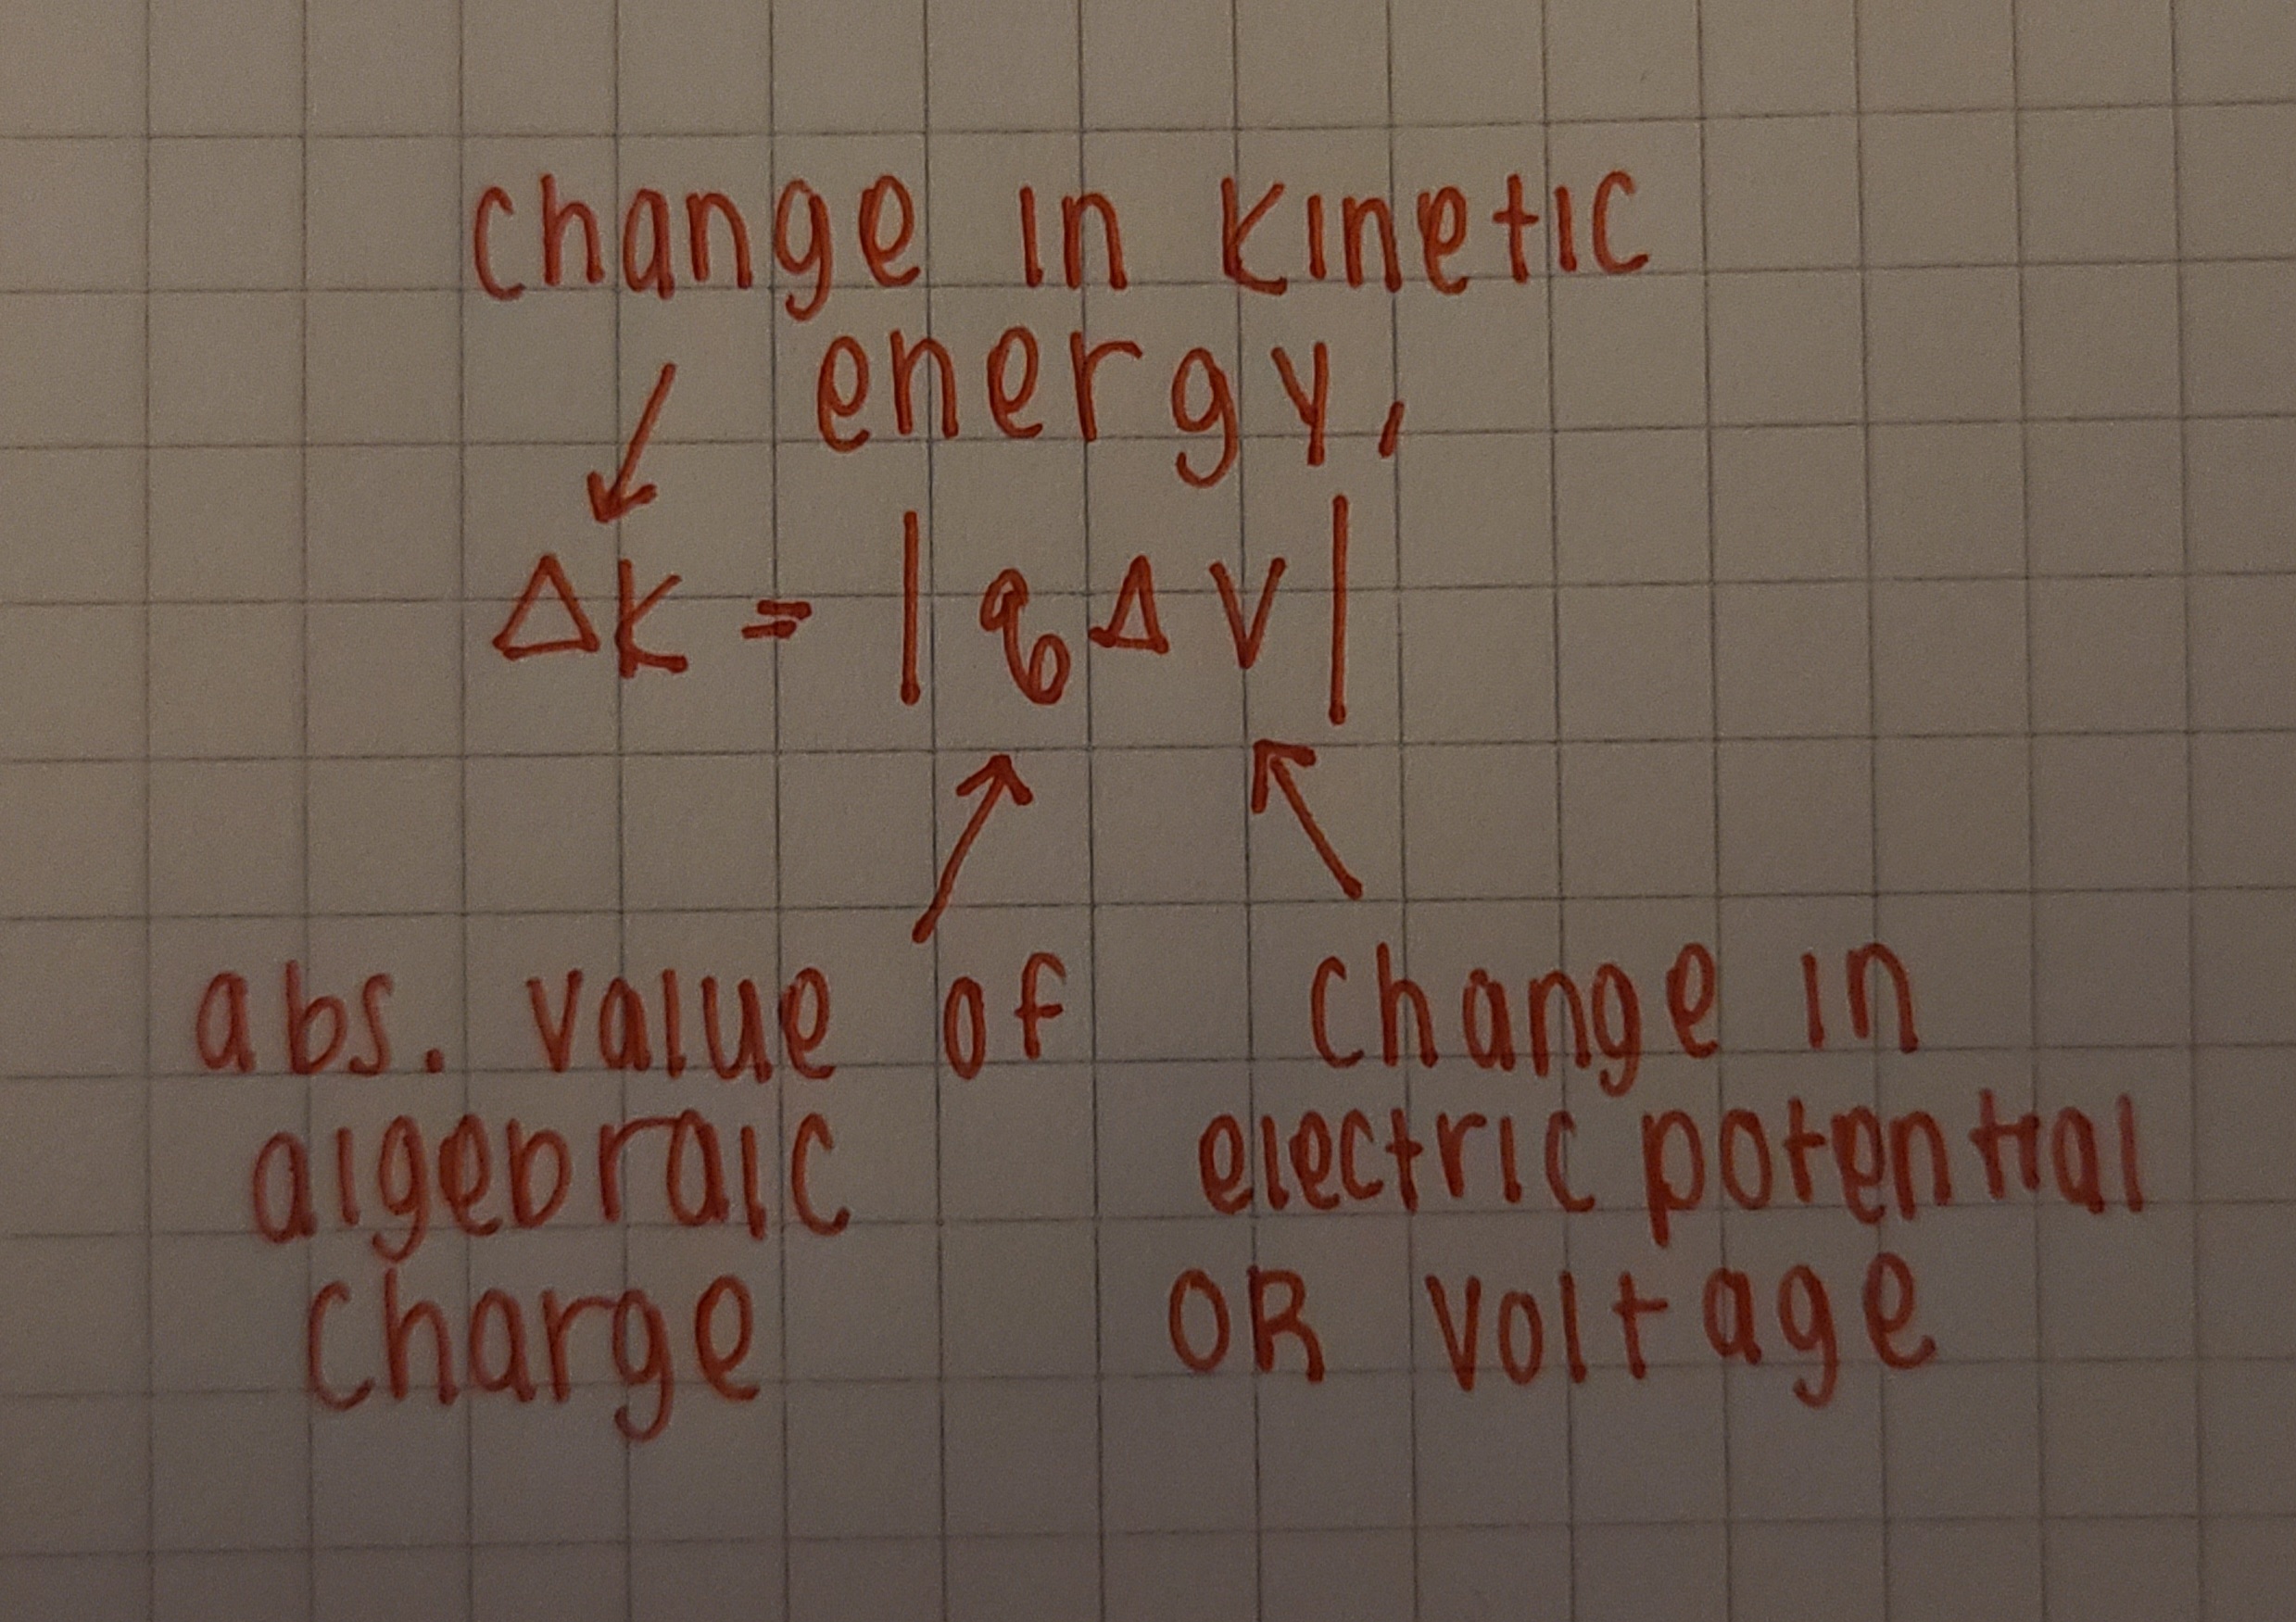 change in kinetic
energy,
ΔK = |qΔV|
abs. value of
algebraic
charge
change in
electric potential
OR voltage